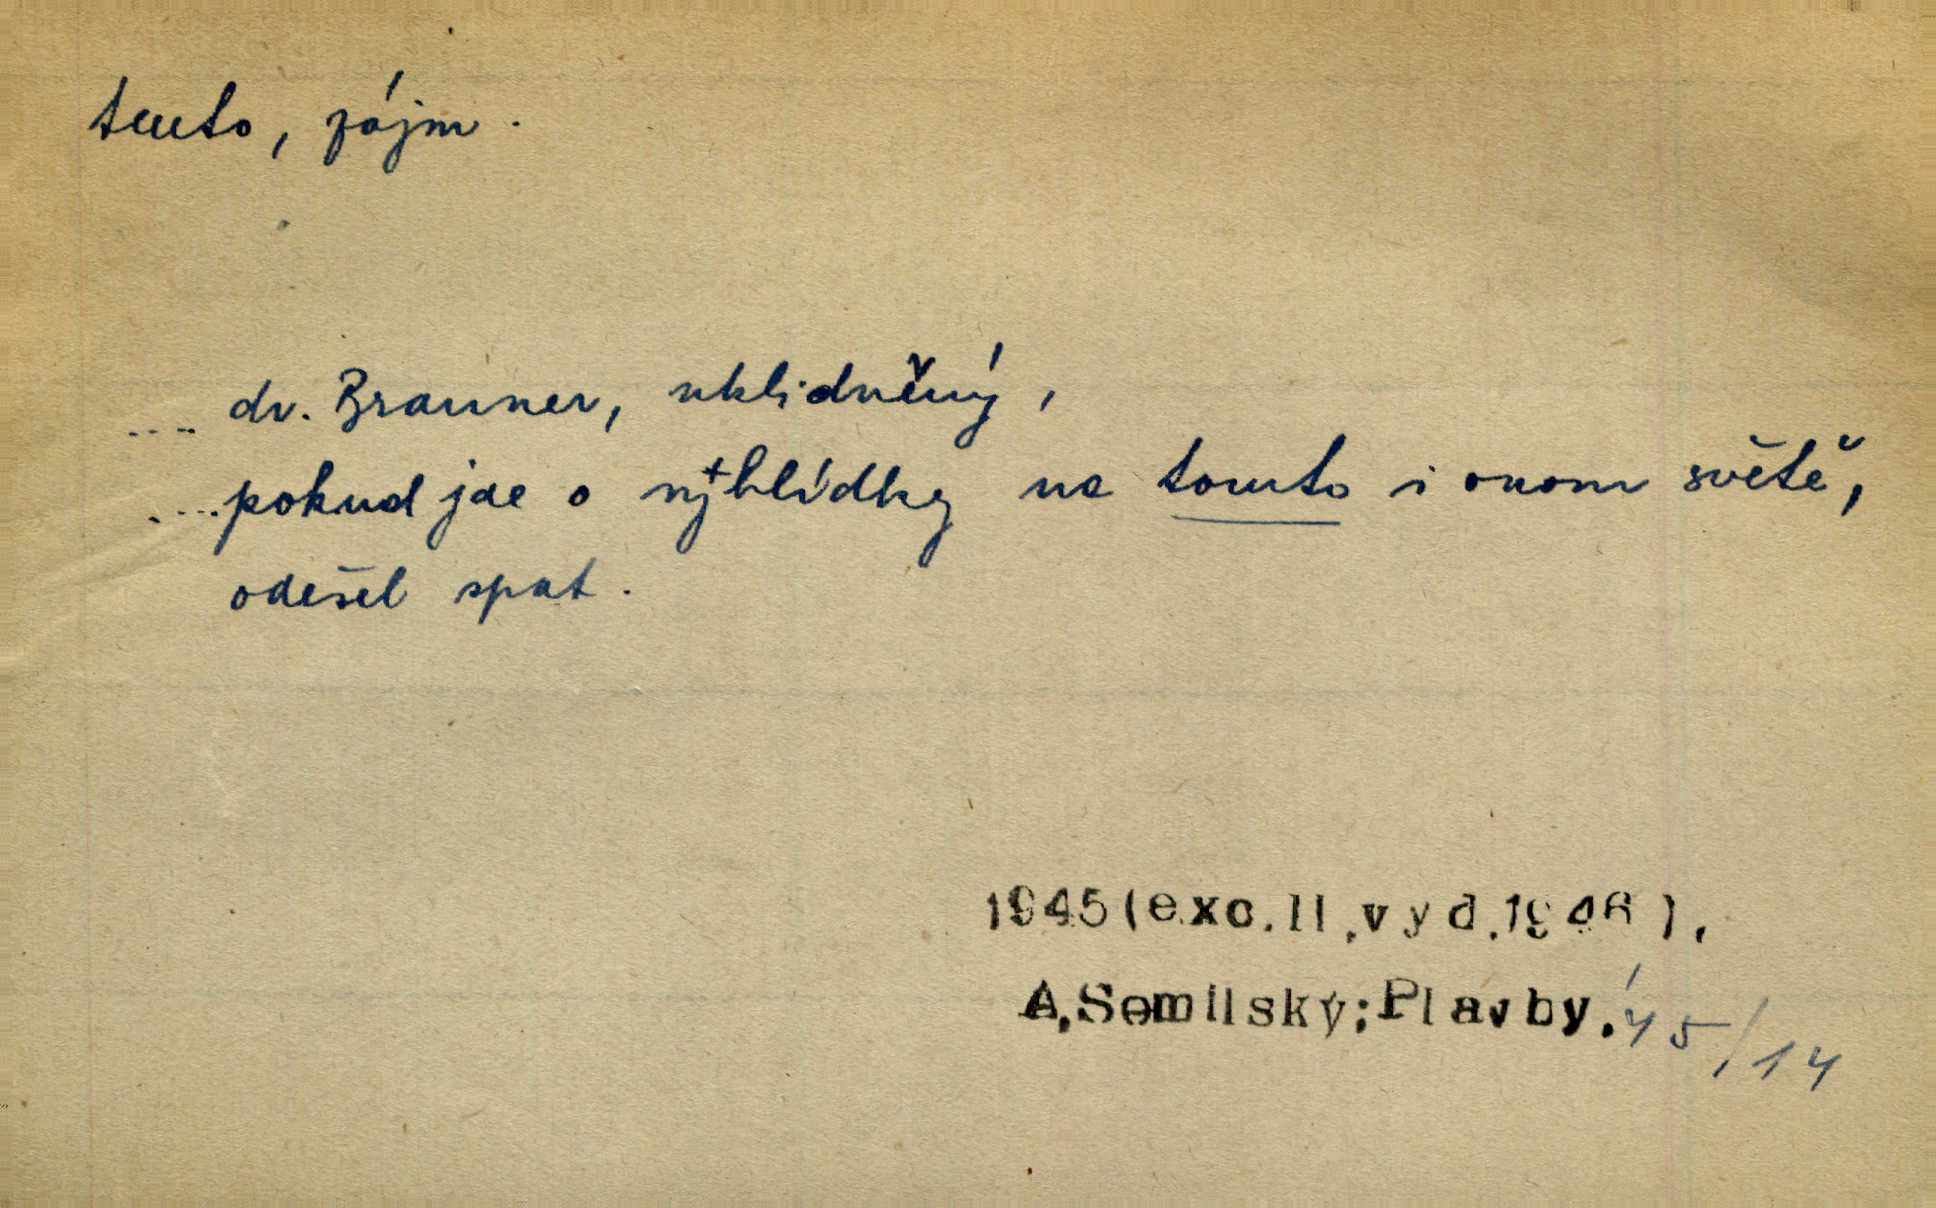 tento, zájm.
.... dr. Brauner, uklidněný,
....pokud jde o výhlídky na tomto i onom světě,
odešel spat.
1945(exc.II.vyd.1946).
A.Semilský;Plavby.45/14